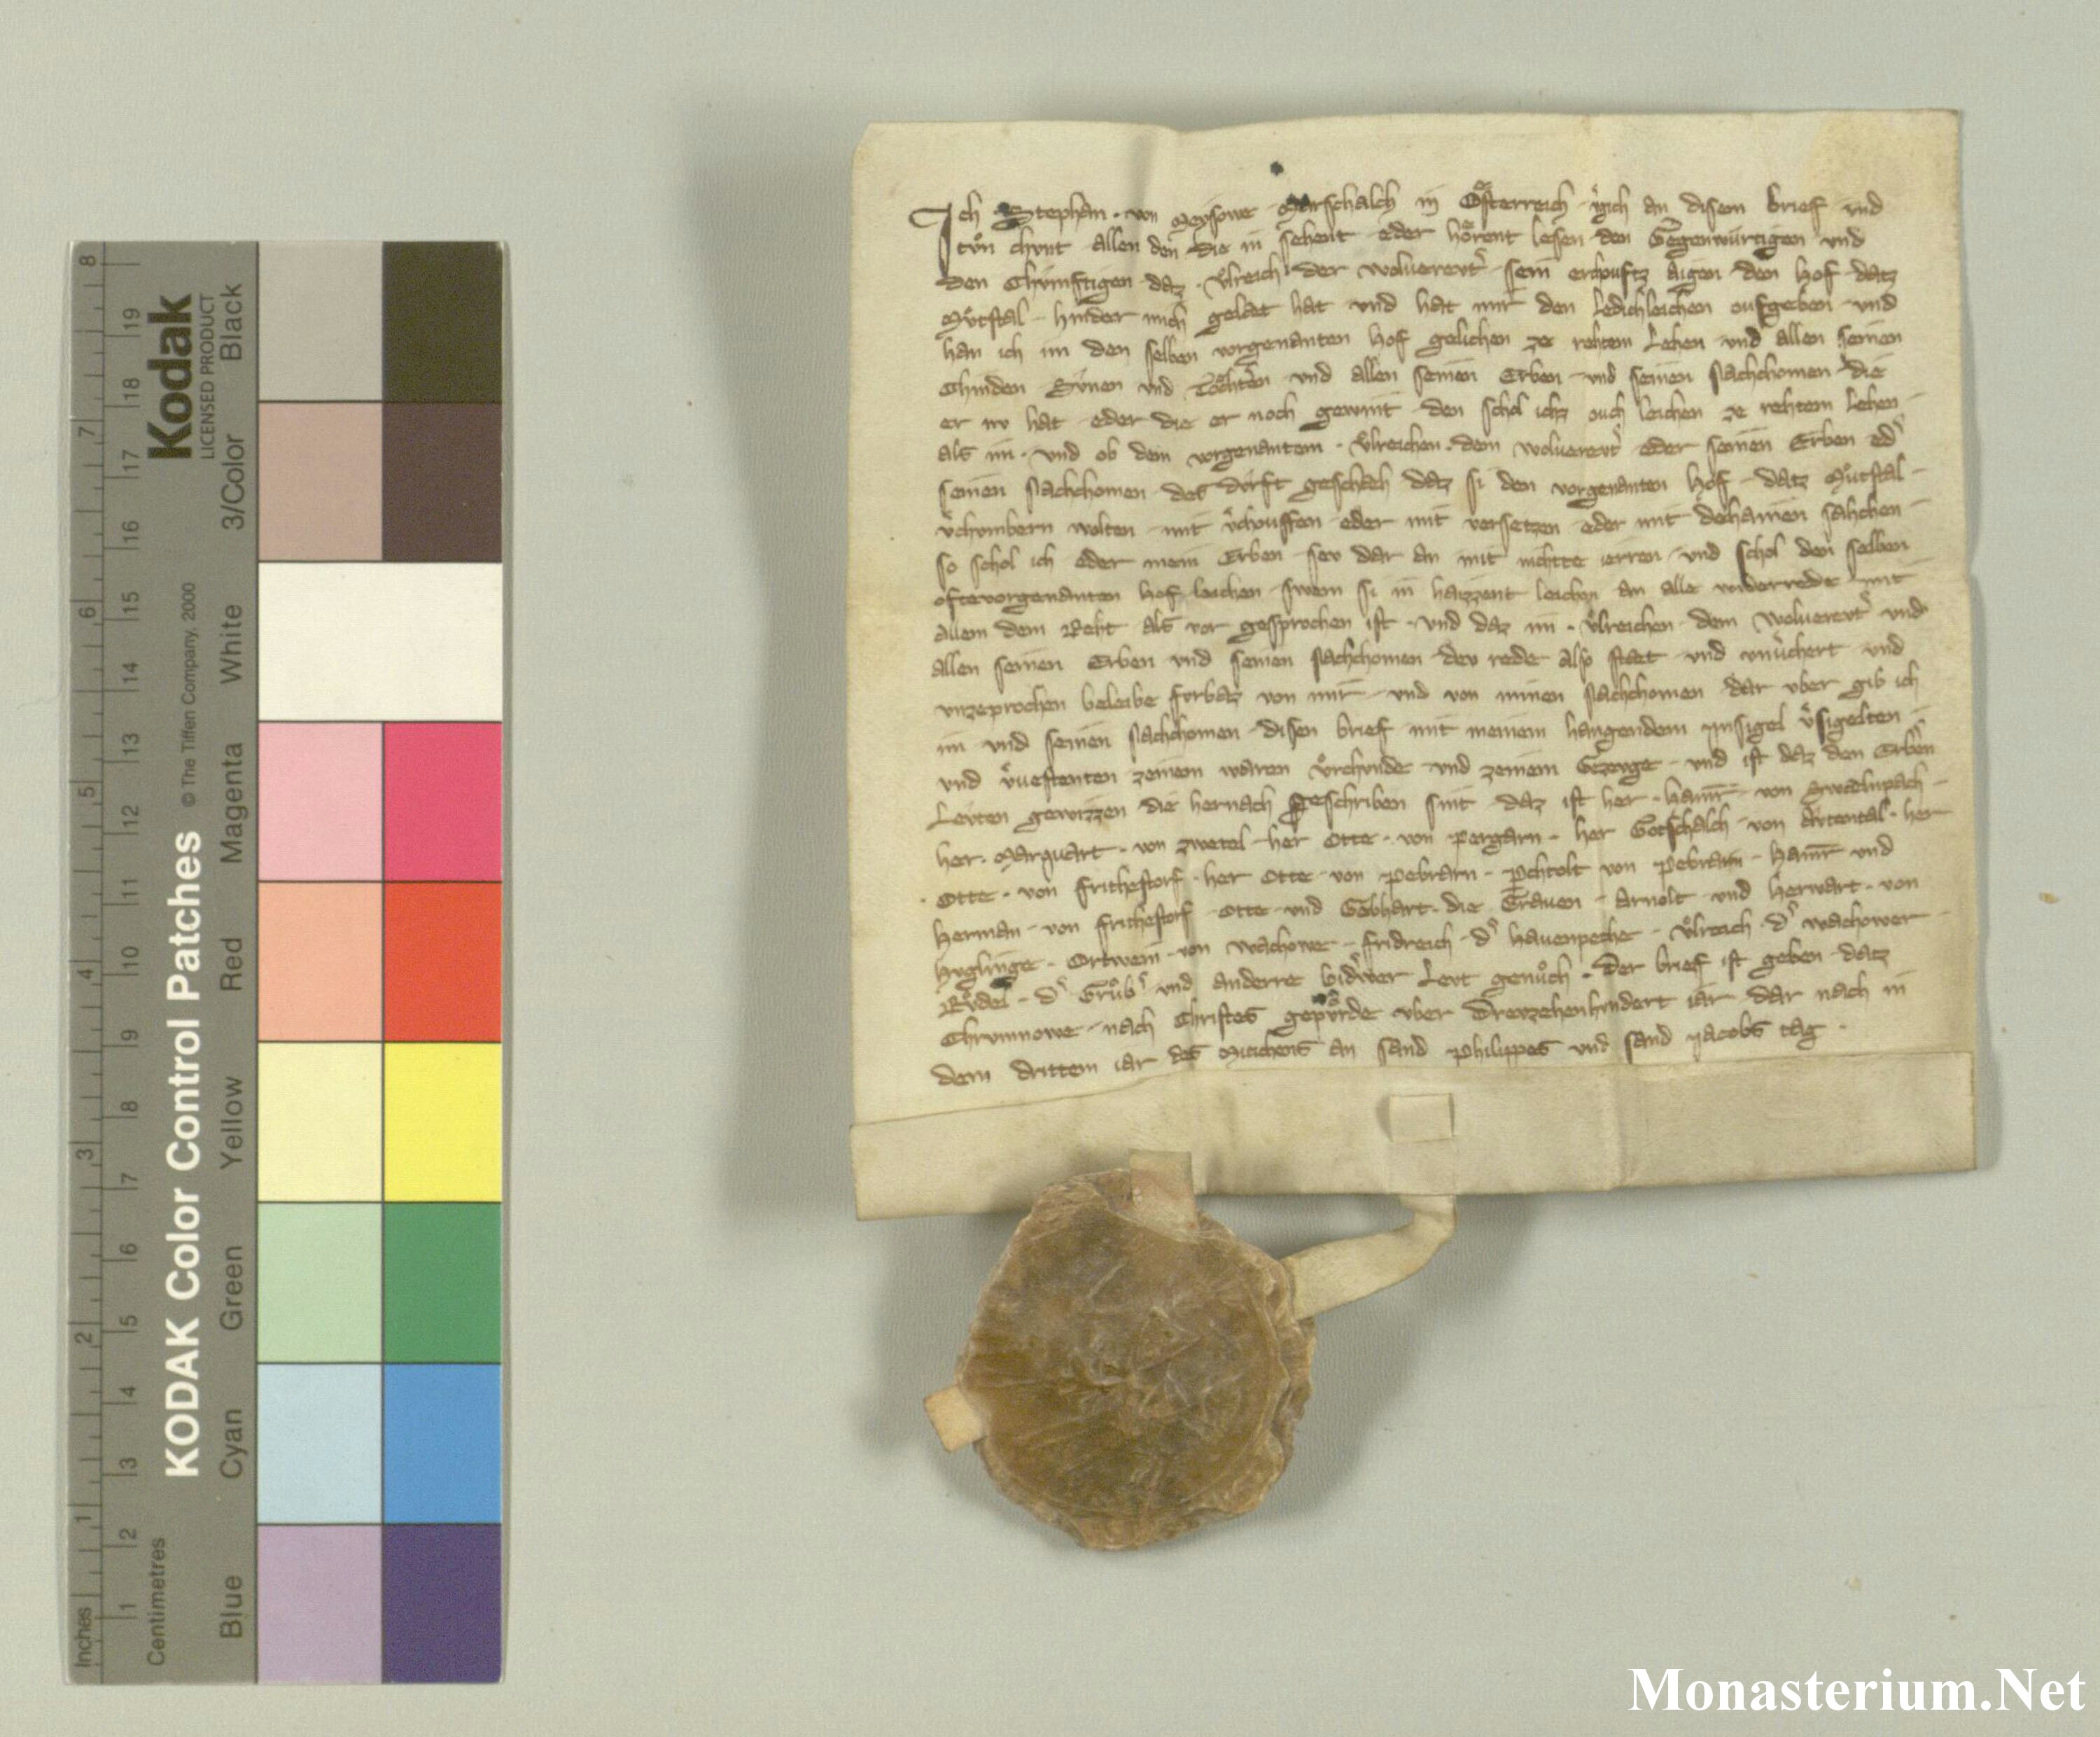 Ich Stephan · von Meÿsowe Marschalch in Oͤsterreich v̾gich an disem brief vnd
tvͦn chvnt allen den die in sehent oder hoͤrent lesen den Gegenwürtigen vnd
den Chvnftigen daz · Vͦlreich der wolueratͥ sein erchouftz aigen den Hof datz
Mvͦtstal hinder mich gelaet hat vnd hat mir den ledichleichen oufgeben vnd
han ich im den selben vorgenanten Hof gelichen ze rehtem Lehen vnd allen seinen
Chinden Svnen vnd Toͤhtern vnd allen seinen Erben vnd seinen Nachchomen die
er nv hat oder die er noch gewint den schol ichz ouch leichen ze rehtem Lehen
als im · vnd ob dem vorgenantem · Vͦlreichen · dem wolueratͥ oder seinen Erben od̾
seinen Nachchomen des dvrft geschaeh daz si den vorgenanten Hof datz Mvͦtstal
v̾chvmbern wolten mit v̾chouffen oder mit versetzen oder mit dehainen sahchen
so schol ich oder mein Erben sev dar an mit nichtte ierren vnd schol den selben
oftevorgenanten Hof leichen swem si in haizzent leichen an alle widerrede mit
allem dem Reht als vor gesprochen ist · vnd daz im · Vͦlreichen dem wolueratͥ vnd
allen seinen Erben vnd seinen Nachchomen dev rede also staet vnd vnv̾chert vnd
vnzeprochen beleibe fvrbaz von mir vnd von minen Nachchomen dar vber gib ich
im vnd seinen Nachchomen disen brief mit meinem hangendem Insigel v̾sigelten
vnd v̾uestenten zeinem waren vͦrchvnde vnd zeinem Gezevge vnd ist daz den Erbern
Levten gewizzen die hernach geschriben sint daz ist her · Hainr̄ von
her · Marquart · von zwetel her Otte · von Pergarn · her Gotschalch von her
Otte · von Frithestorf · her Otte von Pebrarn · P̄chtolt von Pebrarn · Hainr̄ vnd
Herman von Frithestorf Otte vnd Gebhart · die Graven · Arnolt vnd Herwart · von
Hvglinge · Ortwein von Wachowe · Fridreich d̾ Havenpeche · Vͦlreich d̾ wachower
Rvͤdel · d̾ Grvͦb̾ vnd anderre bid̾wer Levt genvͦch · Der brief ist geben datz
Chrvmnowe nach Christes gepvͤrde vber Drevzehenhvndert iar dar nach in
dem drittem iar des Mitichens an sand Philippes vnd sand Jacobs tag ·
KODAK Color Control Patches © The Tiffen Company, 2000
Kodak
LICENSED PRODUCT
Inches 1 2 3 4 5 6 7 8
Centimetres 1 2 3 4 5 6 7 8 9 10 11 12 13 14 15 16 17 18 19
Blue Cyan Green Yellow Red Magenta White 3/Color Black
Monasterium.Net